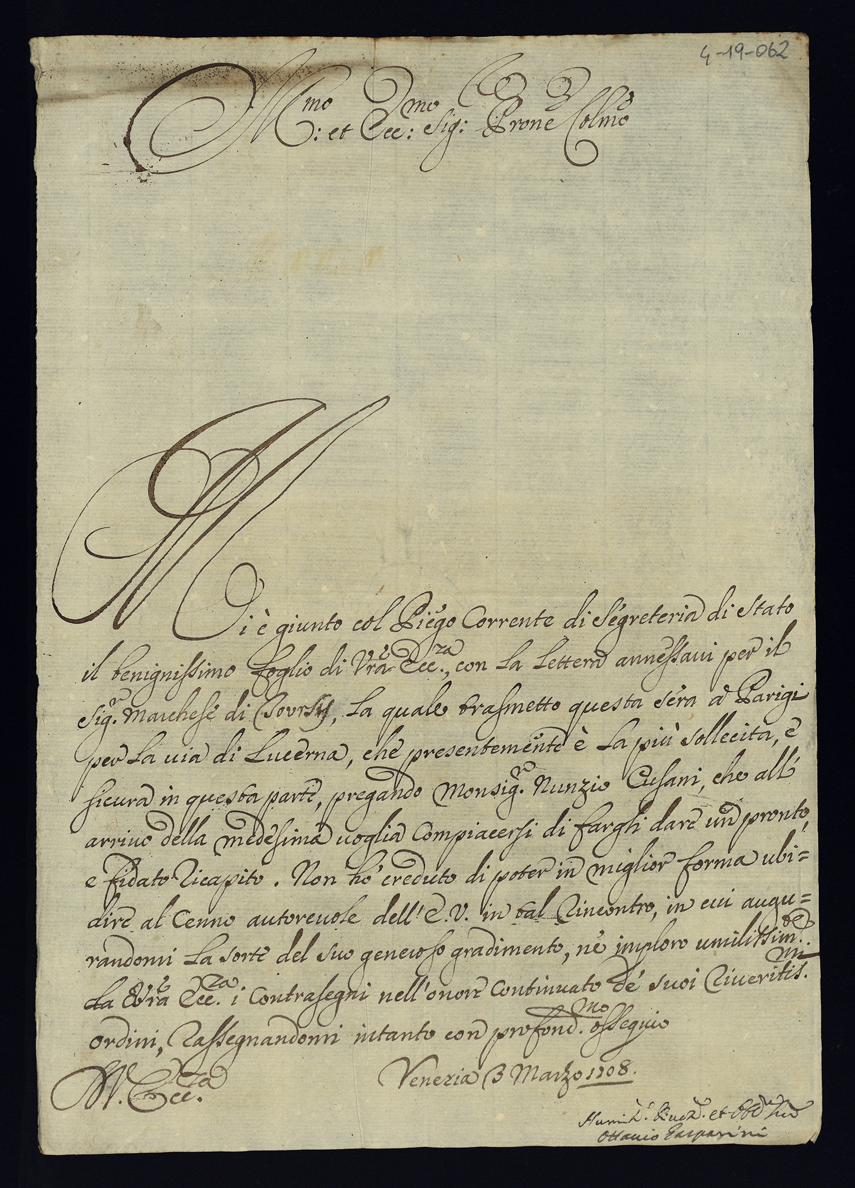 4-19-062
Ill:mo et Ecc:mo Sig: Prone Colmo
Mi è giunto col Piego Corrente di Segreteria di Stato
il benignissimo foglio di Vrã Ecc.za, con la lettera annessavi per il
Sig.r Marchese di, la quale trasmetto questa sera à Parigi
per la via di Lucerna, che presentemente è la più sollecita, e
sicura in questa parte, pregando Monsig.r Nunzio Cusani, che all'
arrivo della medesima voglia compiacersi di fargli dare un pronto,
e fidato ricapito. Non hò creduto di poter in miglior forma ubi=
dire al Cenno autorevole dell'E.V. in tal rincontro, in cui augu=
randomi la sorte del suo generoso gradimento, nè imploro umilissim.te
da Vrã Ecc.za i Contrasegni nell'onore Continuato de' suoi riveritis.mi
ordini, rassegnandomi intanto con profond.mo ossequio
V. Ecc.za
Venezia 3 Marzo 1708.
Humil.o et
Ottavio Gasparini